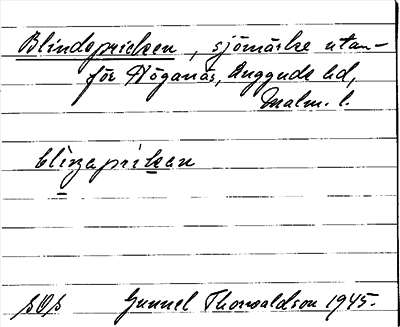 Blindapricken, sjömärke utan-
för Höganäs, Luggude hd,
Malm. l.
blịnapriḳan
sOs Gunnel Thorvaldson 1945.